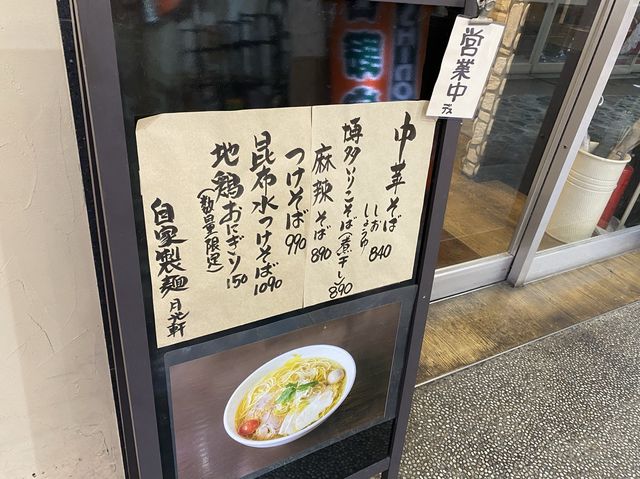 営業中
デス
中華そば
しお
しょうゆ
840
博多いりこそば(煮干し)
890
麻辣そば
890
つけそば
990
昆布水つけそば
1090
地鶏おにぎり
150
(数量限定)
自家製麺